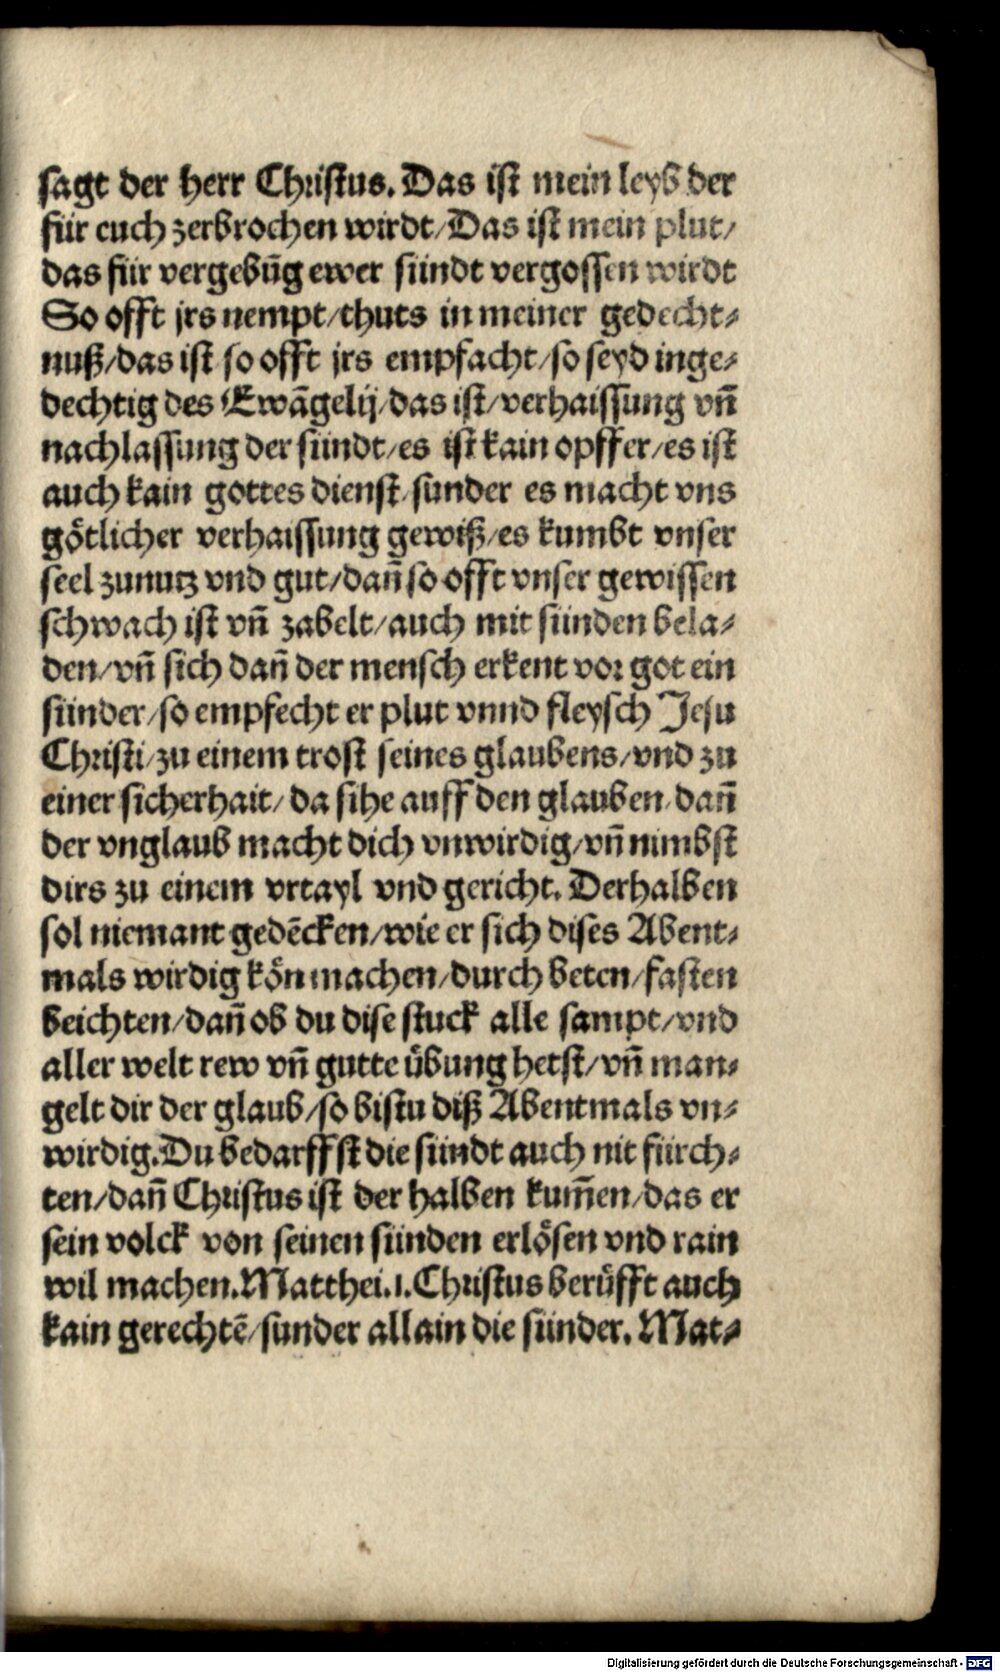 sagt der herr Christus. Das ist mein leyb der
für euch zerbrochen wirdt/Das ist mein plut/
das für vergebūg ewer sündt vergossen wirdt
So offt jrs nempt/thuts in meiner gedecht⸗
nuß/das ist so offt jrs empfacht/so seyd inge⸗
dechtig des Ewāgelij/das ist/verhaissung vn̄
nachlassung der sündt/es ist kain opffer/es ist
auch kain gottes dienst/sunder es macht vns
götlicher verhaissung gewiß/es kumbt vnser
seel zunutz vnd gut/dan̄ so offt vnser gewissen
schwach ist vn̄ zabelt/auch mit sünden bela⸗
den/vn̄ sich dan̄ der mensch erkent vor got ein
sünder/so empfecht er plut vnnd fleysch Jesu
Christi/zu einem trost seines glaubens/vnd zu
einer sicherhait/da sihe auff den glauben/dan̄
der vnglaub macht dich vnwirdig/vn̄ nimbst
dirs zu einem vrtayl vnd gericht. Derhalben
sol niemant gedēcken/wie er sich dises Abent⸗
mals wirdig kön machen/durch beten/fasten
beichten/dan̄ ob du dise stuck alle sampt/vnd
aller welt rew vn̄ gutte übung hetst/vn̄ man⸗
gelt dir der glaub/so bistu diß Abentmals vn⸗
wirdig.Du bedarffst die sündt auch nit fürch⸗
ten/dan̄ Christus ist der halben kum̄en/das er
sein volck von seinen sünden erlösen vnd rain
wil machen.Matthei.1.Christus berüfft auch
kain gerechtē/sunder allain die sünder. Mat⸗
Digitalisierung gefördert durch die Deutsche Forschungsgemeinschaft - DFG